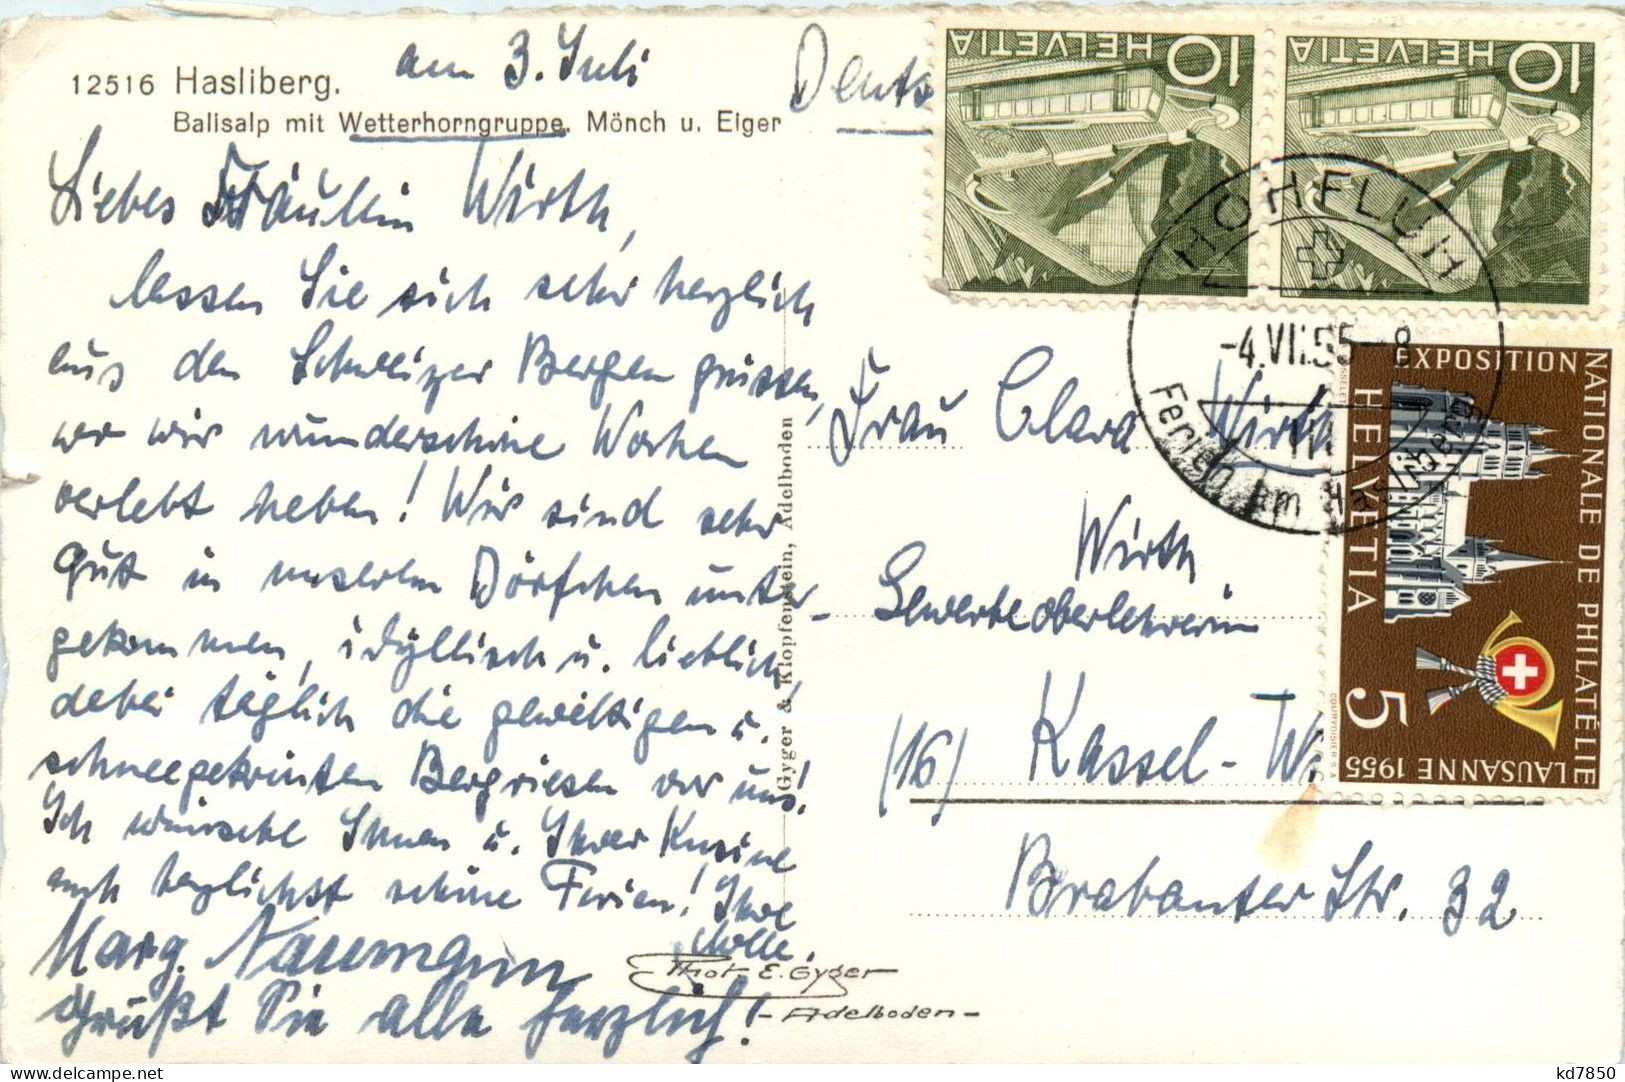 am 3. Juli
12516 Hasliberg.
Balisalp mit Wetterhorngruppe, Mönch u. Eiger
Liebes Fräulein Wirth,
lassen Sie sich sehr herzlich
aus den Schweizer Bergen grüssen,
wo wir wunderschöne Wochen
verlebt haben! Wir sind sehr
gut in unserem Dörfchen unter-
gekommen, idyllisch u. lieblich,
dabei täglich die gewaltigen u.
schneegekrönten Bergriesen vor uns!
Ich wünsche Ihnen u. Ihrer Kusine
auch herzlichst schöne Ferien! Ihre
Marg. Naumann
Grüßt Sie alle herzlich!
Phot. E. Gyger
- Adelboden -
Gyger & Klopfenstein, Adelboden
Deuts
HELVETIA 10
HELVETIA 10
HOHFLUH
-4.VII.55-8
Ferien am Hasliberg
EXPOSITION NATIONALE DE PHILATÉLIE LAUSANNE 1955
HELVETIA 5
COURVOISIER S.A.
Frau Clara Wirth
Wirth
Gewerbeoberlehrerin
(16) Kassel - W.
Brabanter Str. 32
kd7850